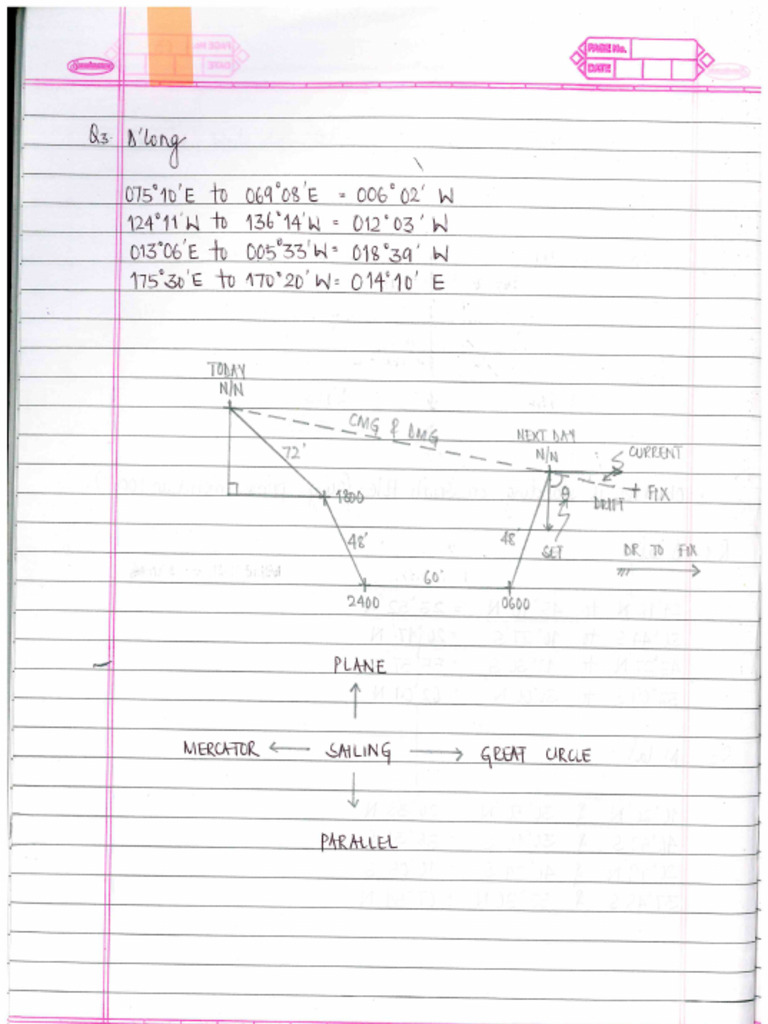 PAGE No.
DATE
Q3. D'long
075°10'E to 069°08'E = 006°02' W
124°11'W to 136°14'W = 012°03' W
013°06'E to 005°33'W = 018°39' W
175°30'E to 170°20'W = 014°10' E
TODAY
N/N
CMG & DMG
NEXT DAY
N/N
CURRENT
72'
θ
DRIFT
FIX
1800
48'
48'
SET
DR TO FIX
60'
2400
0600
PLANE
MERCATOR ← SAILING → GREAT CIRCLE
PARALLEL